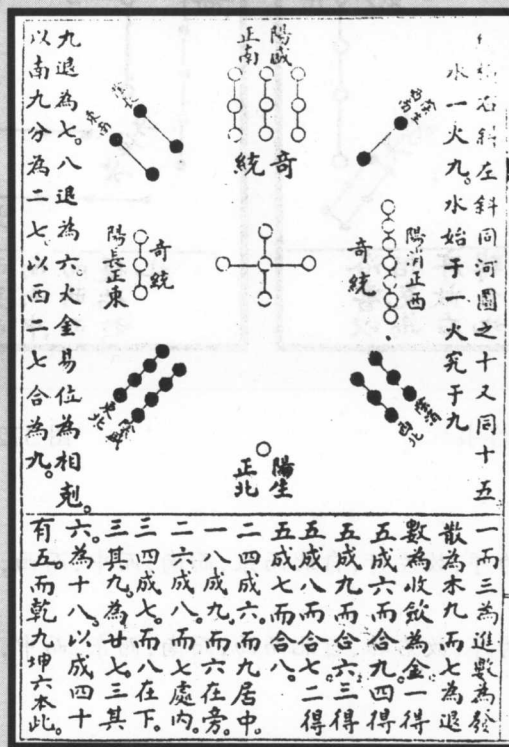 右斜左斜同河圖之十又同十五
水一火九。水始于一火究于九
陽盛
正南
奇統
西南
陽消正西
奇統
西北
陽生
正北
奇統
陽長正東
東南
東北
九退為七。八退為六。火金易位為相剋。
以南九分為二七。以西二七合為九。
一而三為進數為發
散為木九而七為退
數為收斂為金一得
五成六而合九。四得
五成九而合六。三得
五成八而合七。二得
五成七而合八。
二四成六。而九居中。
一八成九。而六在旁。
二六成八。而七處内。
三四成七。而八在下。
三其九。為廿七。三其
六。為十八。以成四十
有五。而乾九坤六本此。